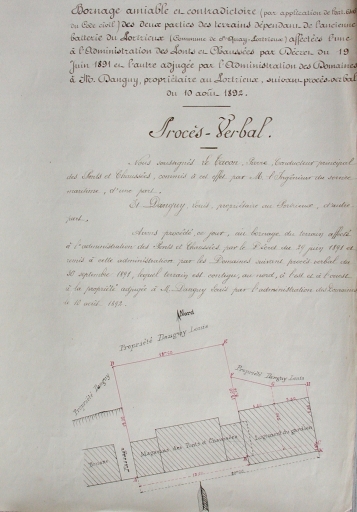 Bornage amiable et contradictoire (par application de l'art. 646
du Code civil) des deux parties des terrains dépendant de l'ancienne
batterie du Portrieux (Commune de St Quay-Portrieux) affectées l'une
à l'Administration des Ponts et Chaussées par Décret du 29
Juin 1891 et l'autre adjugée par l'Administration des Domaines
à Mr. Dauguy, propriétaire au Portrieux, suivant procès-verbal
du 10 août 1892.
Procès-Verbal.
Nous soussignés Conducteur principal
des Ponts et Chaussées, commis à cet effet par M. l'Ingénieur du service
maritime, d'une part,
Et Dauguy, Louis, propriétaire au Portrieux, d'autre
part,
Avons procédé ce jour, au bornage du terrain affecté
à l'administration des Ponts et Chaussées par le Décret du 29 juin 1891 et
remis à cette administration par les Domaines suivant procès verbal du
30 septembre 1891, lequel terrain est contigu, au nord, à l'est et à l'ouest
à la propriété adjugée à M. Dauguy Louis par l'administration des Domaines
le 10 août 1892.
Nord
Propriété Dauguy Louis
Propriété Dauguy Louis
Propriété Dauguy
Passage
Magasin des Ponts et Chaussées
Logement du gardien